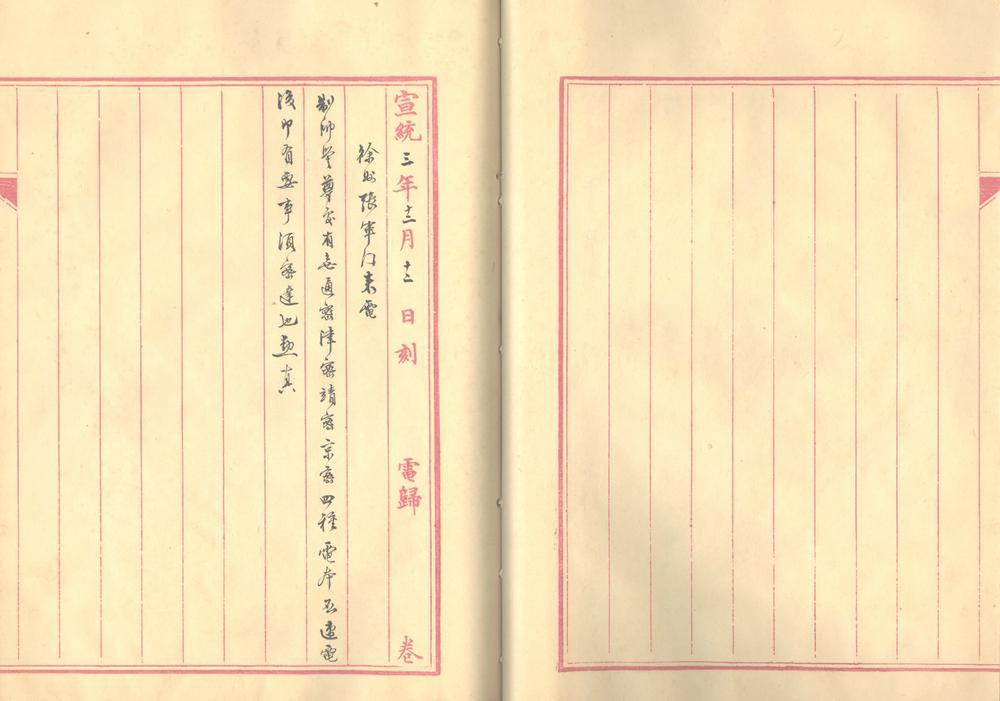 宣統三年十二月十二日刻 電歸 卷
徐州張軍門來電
制帥鑒尊處有無通密津密靖密京密四種電本否速電
復印有要事須密達也勳真